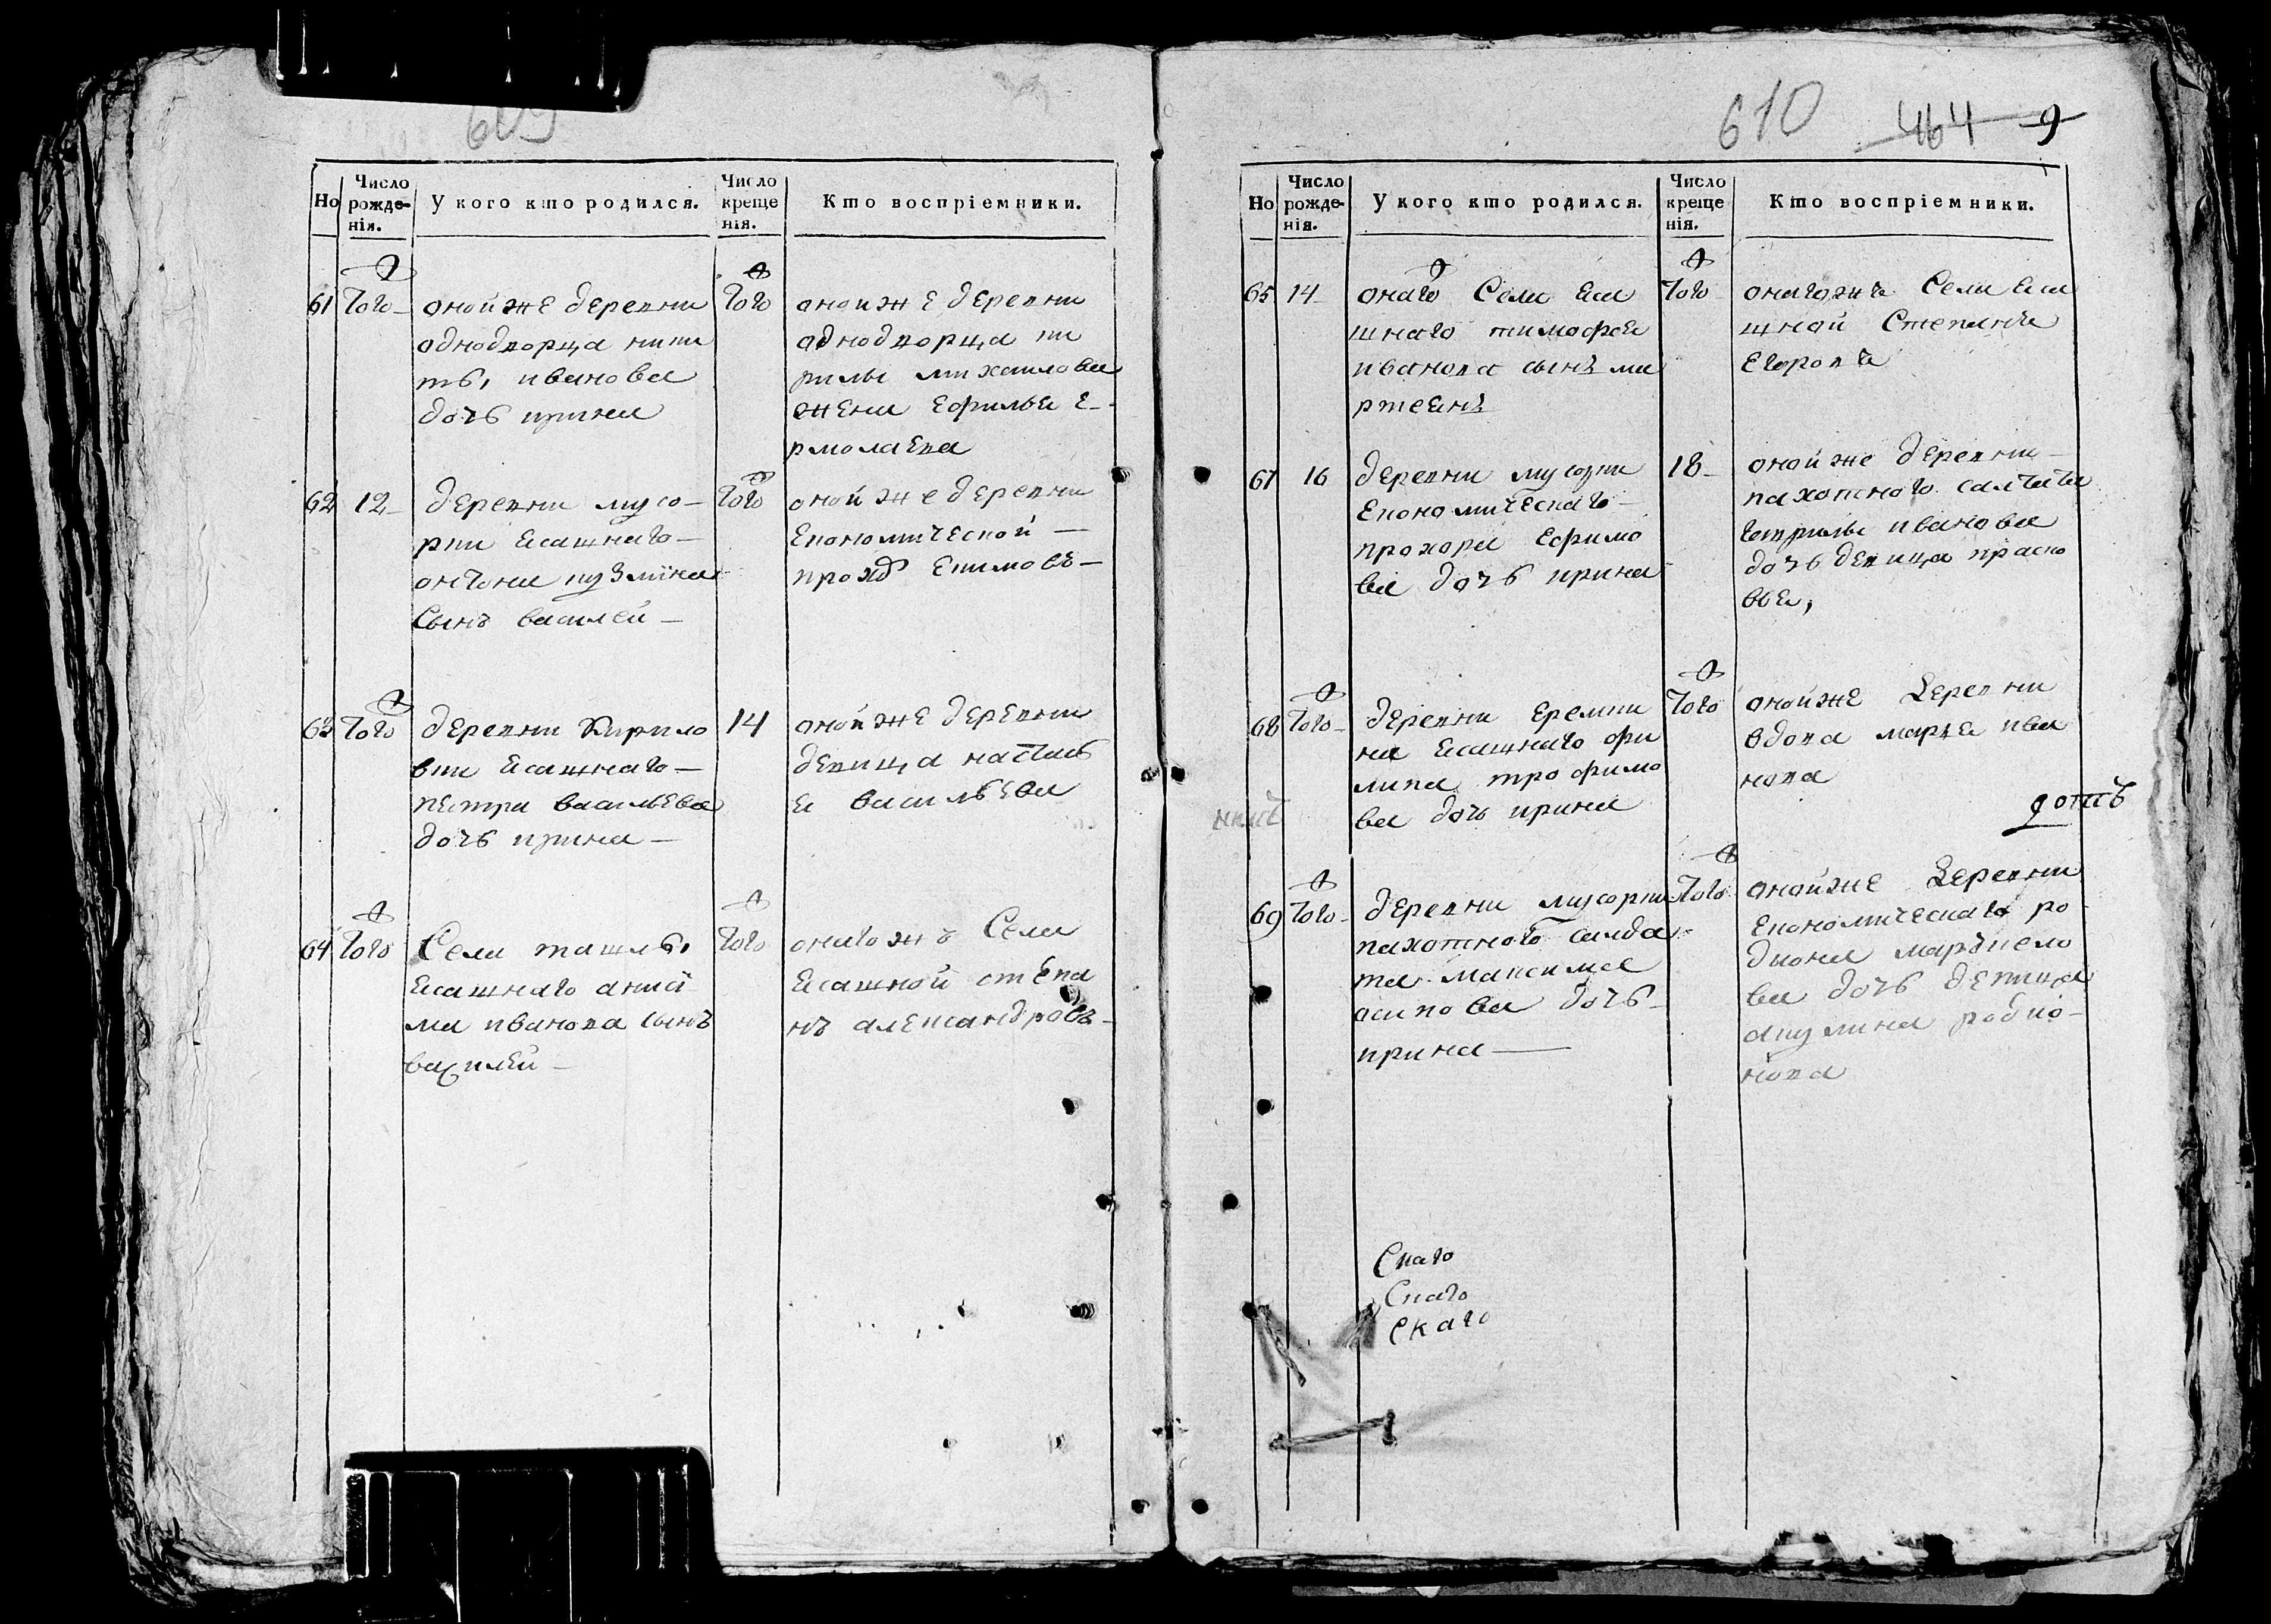 609
Но
Число рожде-нія.
У кого кто родился.
Число креще нія.
Кто воспріемники.
61
Того
оной же деревни
однодворца ники
ты, иванова
дочь ирина
Того
оной же деревни
однодворца ки
рилы михаилова
жена
Е-
рмолаева
62
12
деревни мусо-
рки ясашнаго
антона кузмина
сынъ василей
Того
оной же деревни
Економической
прохо
63
Того
деревни Кирило
вки ясашнаго
петра васильева
дочь ирина
14
оной же деревни
девица настась
я васильева
64
Того
Села ташлы,
ясашнаго
ма иванова сынъ
василей
Того
онагожъ Села
ясашной степа
нъ александровъ
610
464
9
Но
Число рожде-нія.
У кого кто родился.
Число креще нія.
Кто воспріемники.
65
14
онаго Села яса
шнаго тимофея
иванова сынъ ма
ртеянъ
Того
онагожъ Села яса
шной Степанъ
Егоровъ
67
16
деревни мусорки
Економическаго
прохора ефимо
ва дочь ирина
18
оной же деревни
пахотного салтата
гаврилы иванова
дочь девица праско
вья,
68
Того
деревни еремки
на ясашнаго фи
липа трофимо
ва дочь ирина
Того
оной же Деревни
вдова марья ива
нова
69
Того
деревни мусорки
пахотного салда
та максима
осипова дочь
ирина
Того
оной же Деревни
Економическаго ро
диона маркело
ва дочь девица
акулина родио
нова
Скаго
Скаго
Скаго